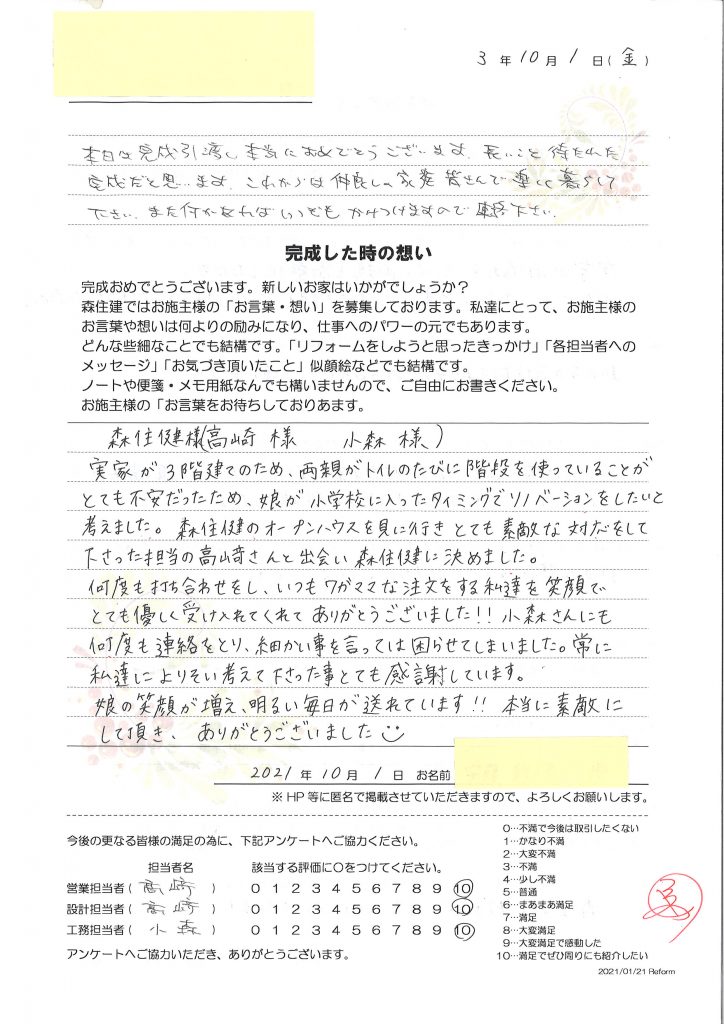 3 年 10 月 1 日(金)
本日は完成引渡し本当におめでとうございます。長いこと待たれた
完成だと思います。これからは仲良しの家族皆さんで楽しく暮らして
下さい。また何かあればいつでもかけつけますので連絡下さい。
完成した時の想い
完成おめでとうございます。新しいお家はいかがでしょうか？
森住建ではお施主様の「お言葉・想い」を募集しております。私達にとって、お施主様の
お言葉や想いは何よりの励みになり、仕事へのパワーの元でもあります。
どんな些細なことでも結構です。「リフォームをしようと思ったきっかけ」「各担当者への
メッセージ」「お気づき頂いたこと」似顔絵などでも結構です。
ノートや便箋・メモ用紙なんでも構いませんので、ご自由にお書きください。
お施主様の「お言葉をお待ちしておりあます。
森住健様(高崎様 小森様)
実家が3階建てのため、両親がトイレのたびに階段を使っていることが
とても不安だったため、娘が小学校に入ったタイミングでリノベーションをしたいと
考えました。森住健のオープンハウスを見に行きとても素敵な対応をして
下さった担当の高崎さんと出会い森住健に決めました。
何度も打ち合わせをし、いつもワガママな注文をする私達を笑顔で
とても優しく受け入れてくれてありがとうございました!! 小森さんにも
何度も連絡をとり、細かい事を言っては困らせてしまいました。常に
私達によりそい考えて下さった事とても感謝しています。
娘の笑顔が増え、明るい毎日が送れています!! 本当に素敵に
して頂き、ありがとうございました
2021 年 10 月 1 日 お名前
※HP等に匿名で掲載させていただきますので、よろしくお願いします。
今後の更なる皆様の満足の為に、下記アンケートへご協力ください。
担当者名 該当する評価に○をつけてください。
営業担当者( 高崎 ) 0 1 2 3 4 5 6 7 8 9 10
設計担当者( 高崎 ) 0 1 2 3 4 5 6 7 8 9 10
工務担当者( 小森 ) 0 1 2 3 4 5 6 7 8 9 10
アンケートへご協力いただき、ありがとうございます。
0…不満で今後は取引したくない
1…かなり不満
2…大変不満
3…不満
4…少し不満
5…普通
6…まあまあ満足
7…満足
8…大変満足
9…大変満足で感動した
10…満足でぜひ周りにも紹介したい
2021/01/21 Reform